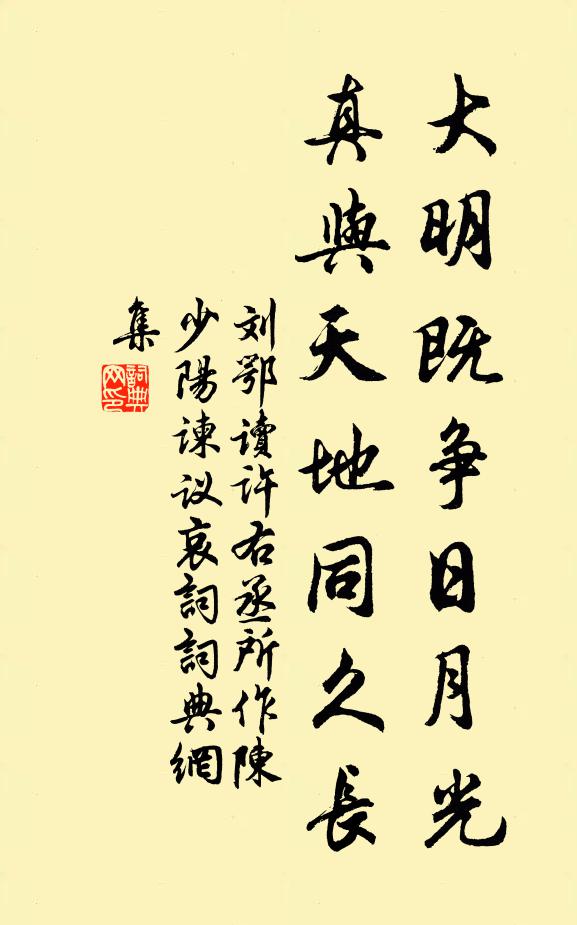 大明既争日月光
真與天地同久長
刘鄂讀許右丞所作陳
少陽諫议哀詞詞典網
集
詞典
网印